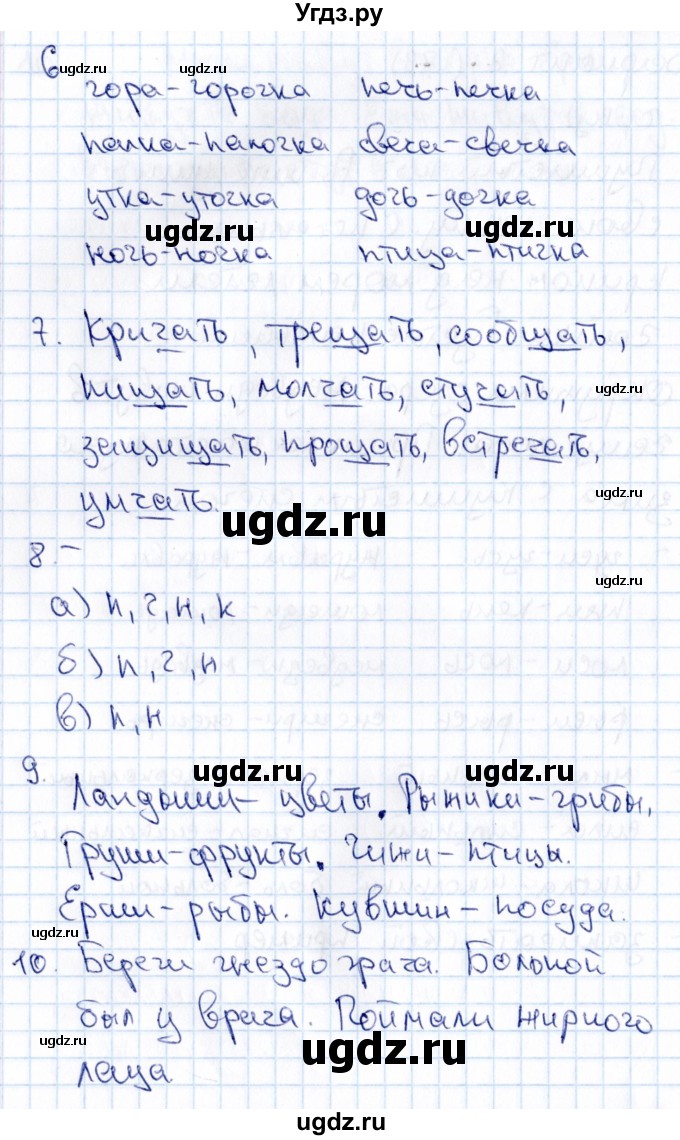 Угдз.ру
6
ugdz.ru ugdz.ru ugdz.ru
гора-горочка печь-печка
палка-палочка свеча-свечка
утка-уточка дочь-дочка
ugdz.ru ugdz.ru
ночь-ночка птица-птичка
7. Кричать, трещать, сообщать,
пищать, молчать, стучать,
ugdz.ru
защищать, прощать, встречать,
умчать.
ugdz.ru
ugdz.ru
8.-
ugdz.ru
а) п, г, н, к
б) п, г, н
в) п, н
9.
ugdz.ru ugdz.ru
Ландыши- цветы. Рыжики-грибы.
Груши-фрукты. Чижи-птицы.
Ерши-рыбы. Кувшин-посуда.
ugdz.ru
10. Береги гнездо грача. Больной
был у врача. Поймали жирного
ugdz.ru ugdz.ru
леща
ugdz.ru